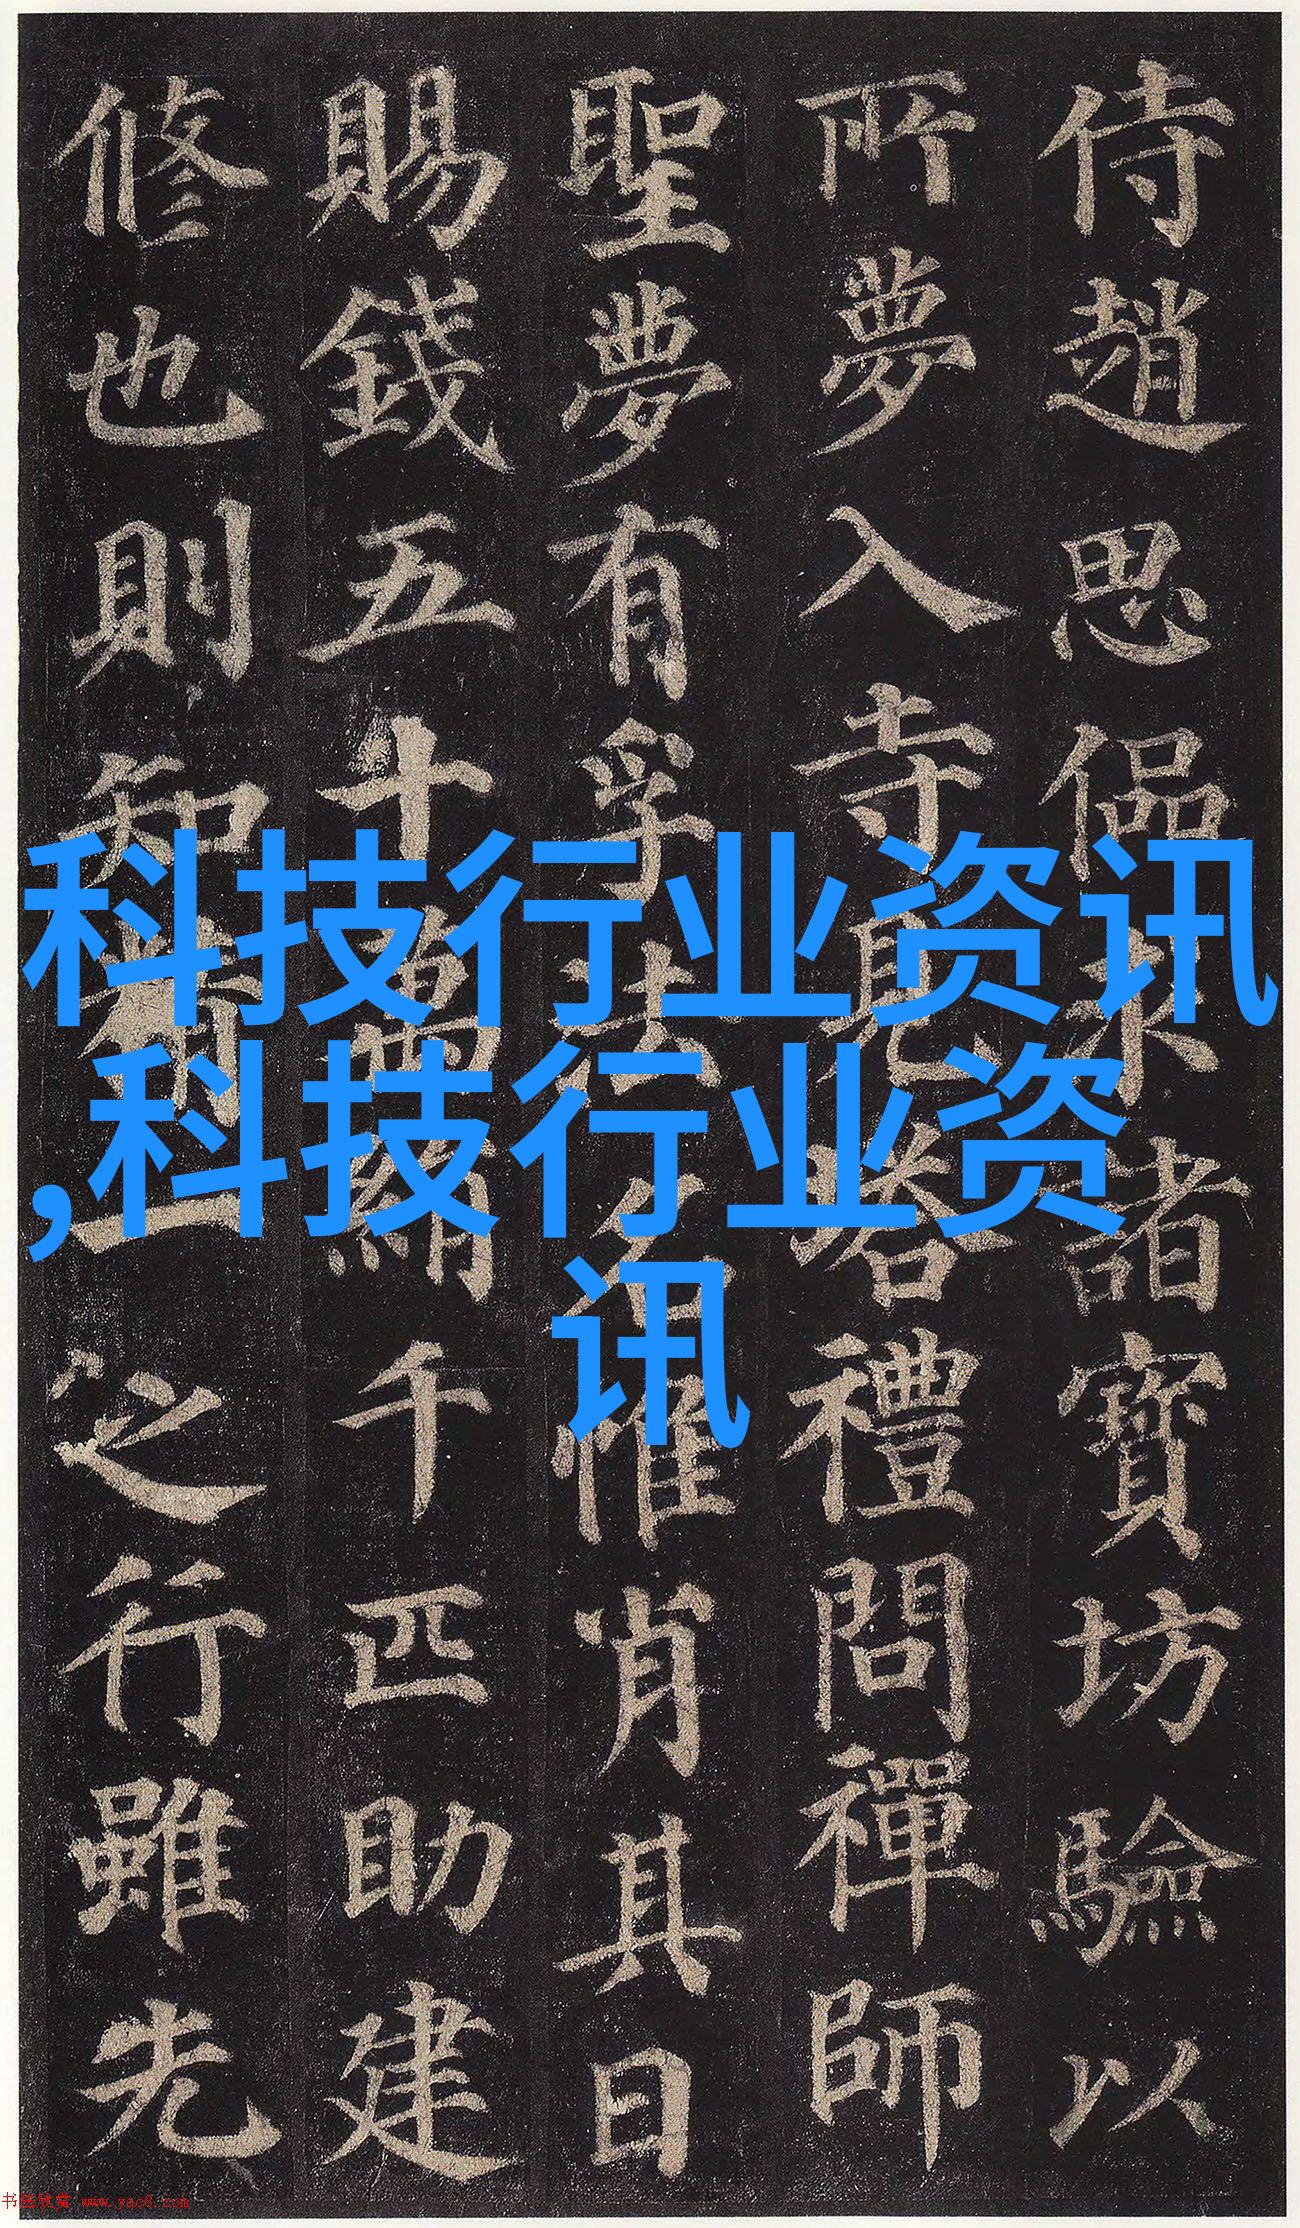 侍趙思偘求諸寶坊驗以
所夢入寺見塔禮問禪師
聖夢有孚法名惟肖其日
賜錢五十萬絹千匹助建
修也則知一之行雖先
科技行业资讯
,科技行业资
讯
书法欣赏 www.yac8.com